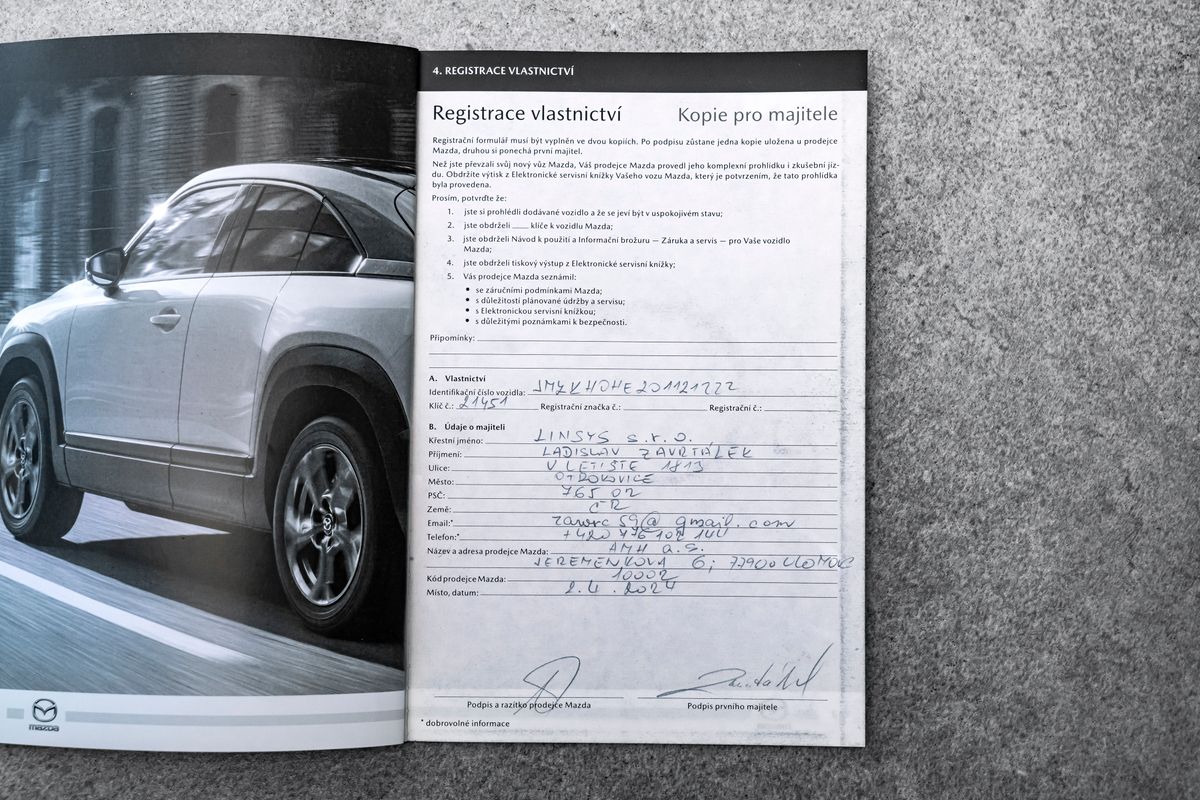 4. REGISTRACE VLASTNICTVÍ
Registrace vlastnictví Kopie pro majitele
Registrační formulář musí být vyplněn ve dvou kopiích. Po podpisu zůstane jedna kopie uložena u prodejce
Mazda, druhou si ponechá první majitel.
Než jste převzali svůj nový vůz Mazda, Váš prodejce Mazda provedl jeho komplexní prohlídku i zkušební jíz-
du. Obdržíte výtisk z Elektronické servisní knížky Vašeho vozu Mazda, který je potvrzením, že tato prohlídka
byla provedena.
Prosím, potvrďte že:
1. jste si prohlédli dodávané vozidlo a že se jeví být v uspokojivém stavu;
2. jste obdrželi ____ klíče k vozidlu Mazda;
3. jste obdrželi Návod k použití a Informační brožuru — Záruka a servis — pro Vaše vozidlo
Mazda;
4. jste obdrželi tiskový výstup z Elektronické servisní knížky;
5. Váš prodejce Mazda seznámil:
• se záručními podmínkami Mazda;
• s důležitostí plánované údržby a servisu;
• s Elektronickou servisní knížkou;
• s důležitými poznámkami k bezpečnosti.
Připomínky:
A. Vlastnictví
Identifikační číslo vozidla:
Klíč č.: 21451 Registrační značka č.: Registrační č.:
B. Údaje o majiteli
Křestní jméno: LINSYS s.r.o.
Příjmení: LADISLAV ZAVRTÁLEK
Ulice: V LETIŠTE 1813
Město: OTROKOVICE
PSČ: 765 02
Země: ČR
Email:* zavrc59@gmail.com
Telefon:* +420 776 102 144
Název a adresa prodejce Mazda: AMH a.s.
JEREMENKOVA 6; 77900 OLOMOUC
Kód prodejce Mazda: 10002
Místo, datum: 2.4.2024
Podpis a razítko prodejce Mazda Podpis prvního majitele
* dobrovolné informace
mazda